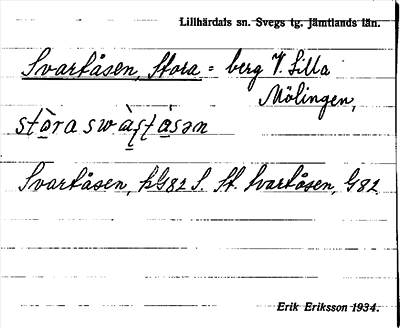 Lillhärdals sn. Svegs tg. Jämtlands län.
Svartåsen, Stora = berg V. Lilla
Mölingen,
Svartåsen, hG82 S. St. Svartåsen, G82
Erik Eriksson 1934.